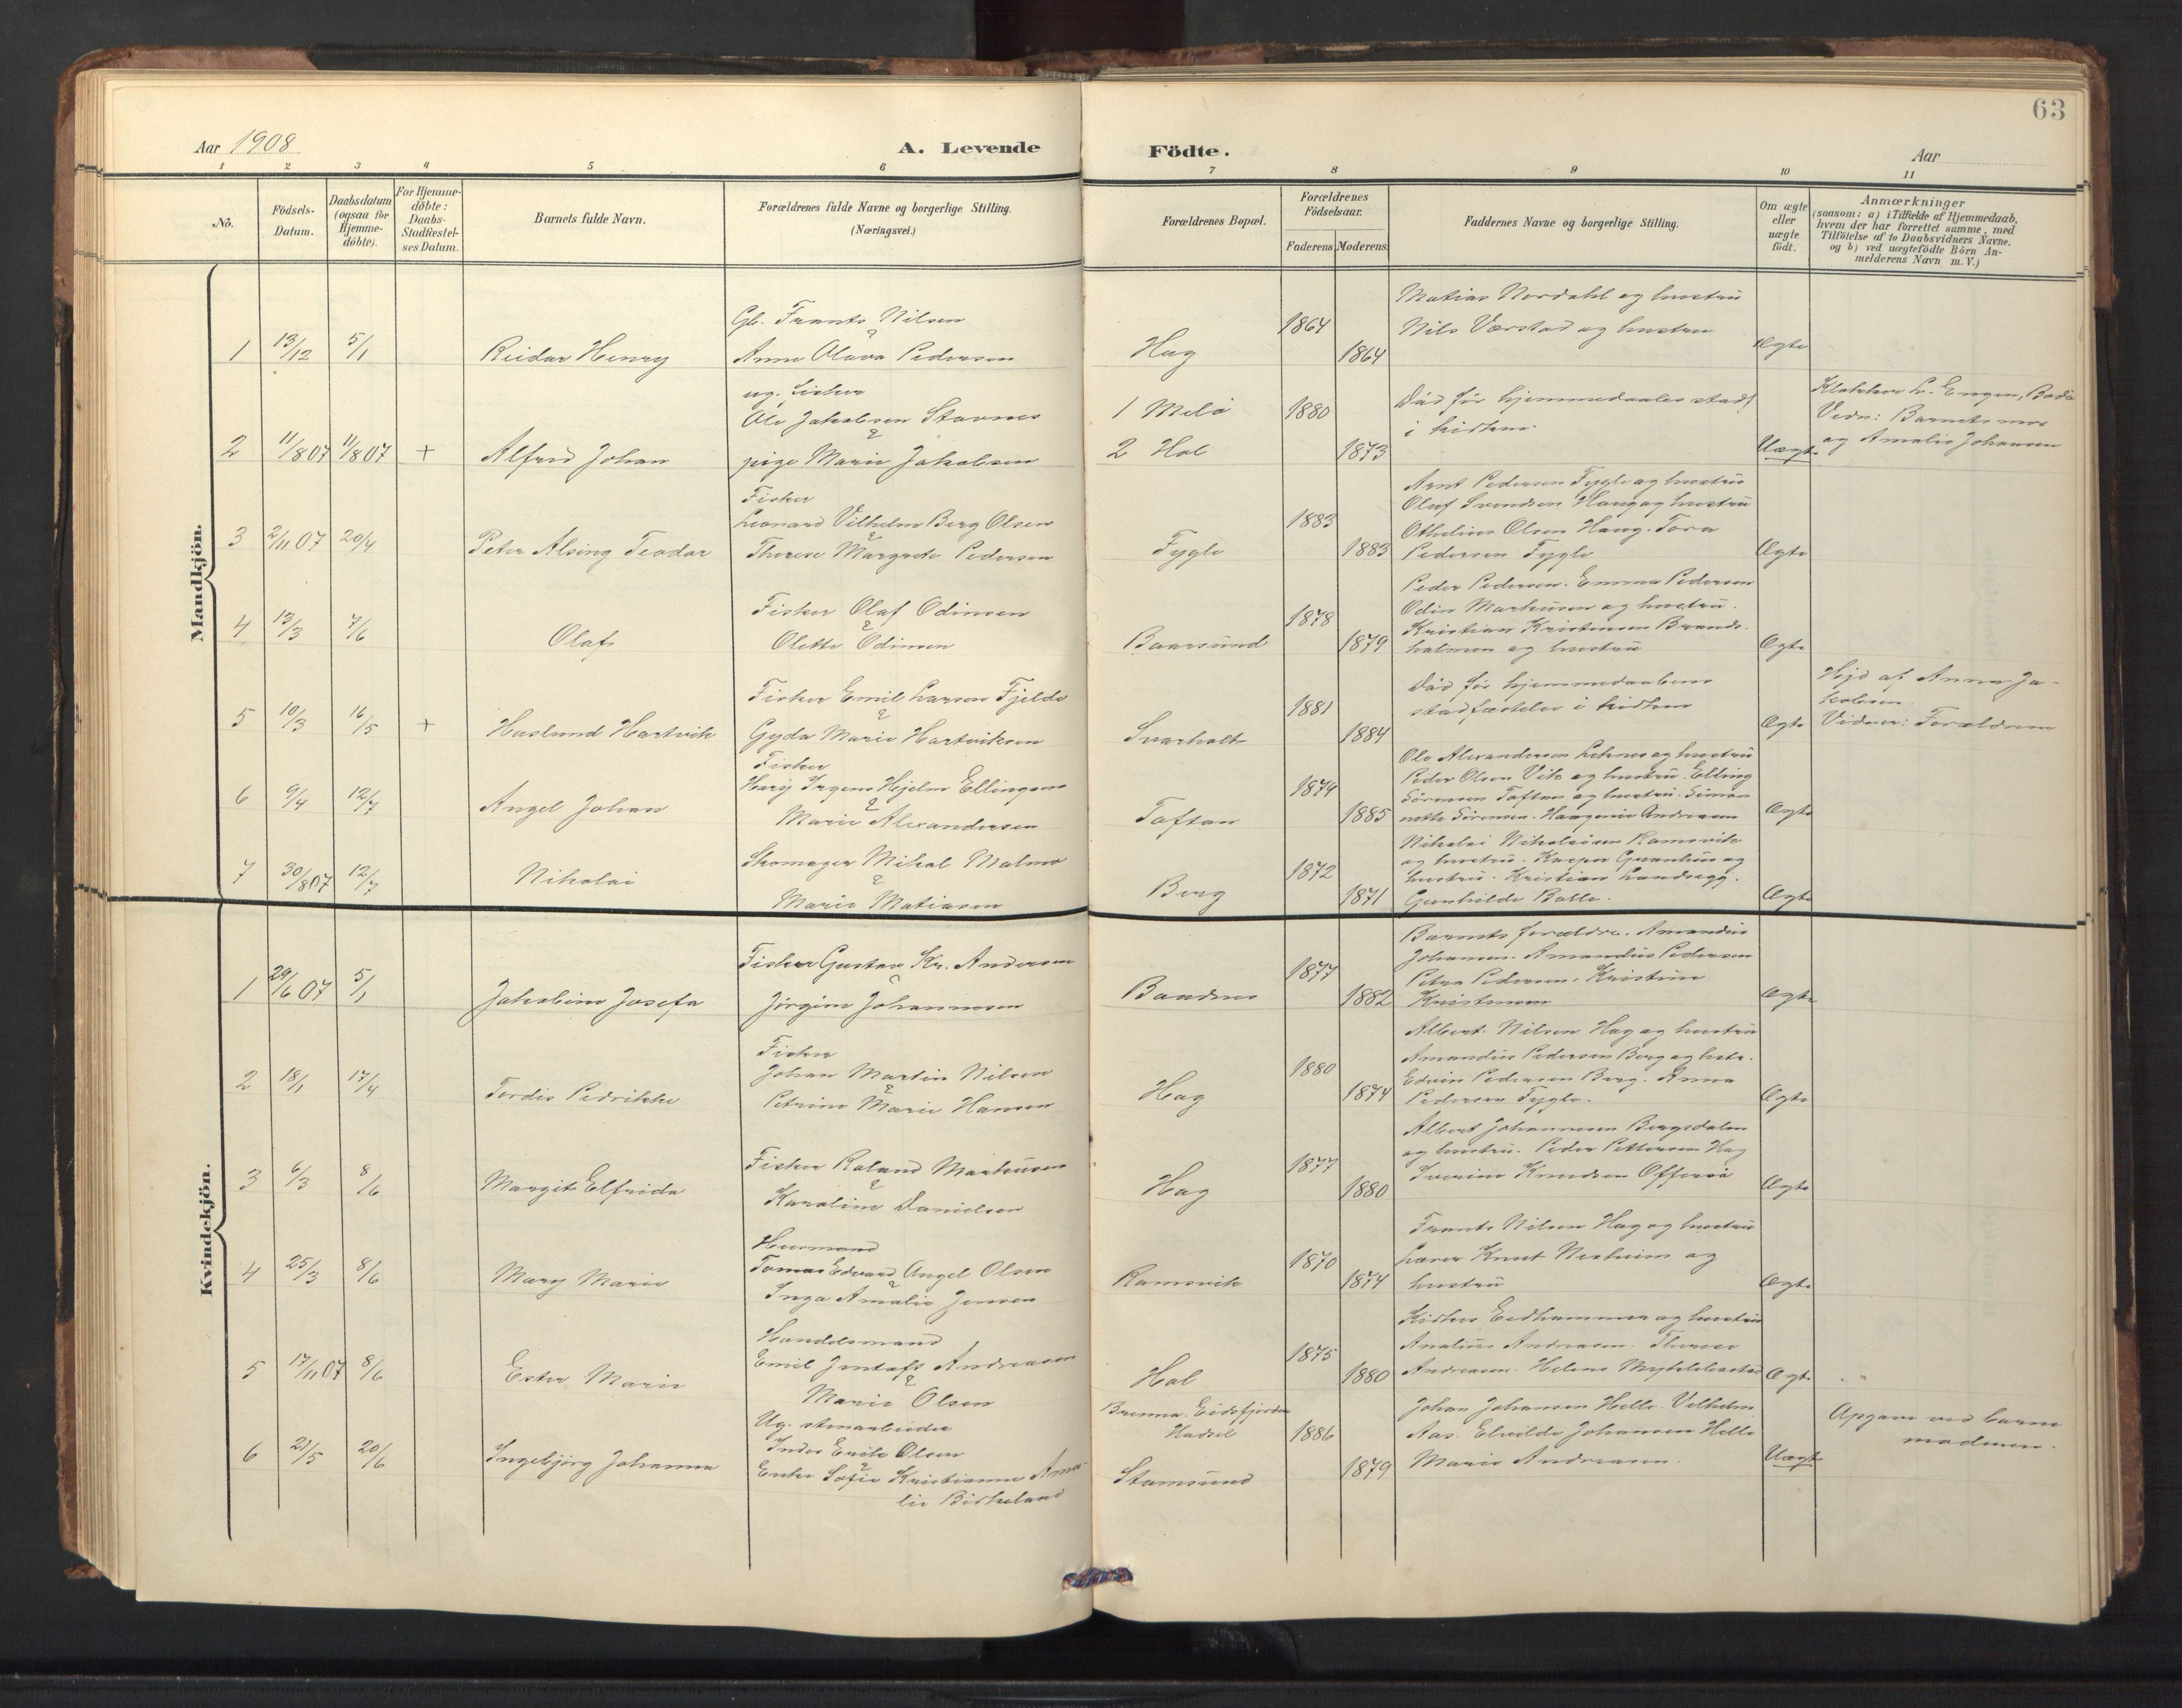 63
Aar 1908
A. Levende
Födte.
Aar
1 2 3 4 5 6 7 8 9 10 11
No.
Födsels-
Datum.
Daabsdatum
(ogsaa for
Hjemme-
döbte).
For Hjemme-
döbte:
Daabs-
Stadfæstel-
ses Datum.
Barnets fulde Navn.
Forældrenes fulde Navne og borgerlige Stilling.
(Næringsvei.)
Forældrenes Bopæl.
Forældrenes
Födselsaar.
Faderens Moderens
Faddernes Navne og borgerlige Stilling.
Om ægte
eller
uægte
födt.
Anmærkninger
(saasom: a) i Tilfælde af Hjemmedaab,
hvem der har forrettet samme, med
Tilföielse af to Daabsvidners Navne.
og b) ved uægtefödte Börn An-
melderens Navn m. V.)
Mandkjön.
1 13/12 5/1 Reidar Henry
Gb. Frants Nilsen
&
Anne Olava Pedersen
Hag 1864 1864
Matias Nordahl og hustru
Nils Værstad og hustru
Ægte
2 11/8 07 11/8 07 + Alfred Johan
ug. fisker
Ole Jakobsen Stavnes
&
pige Marie Jakobsen
1 Melö
2 Hol
1880 1873
Död för hjemmedaabes stadf
i kirken.
Uægt.
Klokker L. Engen, Bodö
Vidn: Barnets mor
og Amalie Johansen
3 2/11 07 20/4 Peter Alsing Teodor
Fisker
Leonard Vilhelm Berg Olsen
&
Therese Margrete Pedersen
Fygle 1883 1883
Arnt Pedersen Fygle og hustru
Oluf Svendsen Haug og hustru
Othelius Olsen Haug. Tora
Pedersen Fygle
Ægte
4 13/3 7/6 Olaf
Fisker Olaf Odinsen
&
Olette Odinsen
Baarsund 1878 1879
Peder Pedersen. Emma Pedersen
Odin Markusen og hustru.
Kristian Kristensen Brands-
holmen og hustru
Ægte
5 10/3 16/5 + Haslund Hartvik
Fisker Emil Larsen Fjelde
&
Gyda Marie Hartviksen
Svarholt 1881 1884
Död för hjemmedaabens
stadfæstelse i kirken
Ægte
Hjd af Anna Ja-
kobsen
Vidner: Forældrene
6 9/4 12/7 Angel Johan
Fisker
Harÿ Irgens Hjelm Ellingsen
&
Marie Alexandersen
Toftan 1874 1885
Ole Alexandersen Leknes og hustru
Peder Olsen Vik og hustru. Elling
Sörensen Toftan og hustru. Simon
nette Sörensen. Andreasen
Ægte
7 30/8 07 12/7 Nikolai
Skomager Mikal Malmo
&
Marie Matiasen
Berg 1872 1871
Nikolai Nikolaisen Ramsvik
og hustru. Kasper og
hustru. Kristian Landsegg.
Gunhilde Balle.
Ægte
Kvindekjön.
1 29/6 07 5/1 Jakobine Josefa
Fisker Gustav Kr. Andersen
&
Jörgine Johannesen
Baadnes 1877 1882
Barnets forældre. Amandus
Johansen. Amandus Pedersen
Petra Pedersen. Kristine
Kristensen
Ægte
2 18/1 17/4 Tordis Pedrikke
Fisker
Johan Martin Nilsen
&
Petrine Marie Hansen
Hag 1880 1874
Albert Nilsen Hag og hustru
Amandus Pedersen Berg og hustr.
Edvin Pedersen Berg. Anna
Pedersen Fygle.
Ægte
3 6/3 8/6 Margit Elfrida
Fisker Roland Markusen
&
Karoline Danielsen
Hag 1877 1880
Albert Johannesen Bergsdalen
og hustru. Peder Pettersen Hag
Iverine Knudsen Offersö
Ægte
4 25/3 8/6 Mary Marie
Husmand
Tomas Edvard Angel Olsen
&
Inga Amalie Jensen
Ramsvik 1870 1874
Frants Nilsen Hag og hustru
Lærer Knut Nesheim og
hustru
Ægte
5 17/11 07 8/6 Ester Marie
Handelsmand
Emil Gustaf Andreasen
&
Marie Olsen
Hol 1875 1880
Eidhammer og hustru
Analius Andreasen. Therese
Andreasen. Helene Myklebostad
Ægt.
6 21/5 20/6 Ingebjörg Johanna
Ug. stenarbeider
Indes Erik Olsen
&
Enke Sofie Kristianne Ama-
lie Birkeland
Brenna. Eidsfjorden
Hadsel
Stamsund
1886 1879
Johan Johansen Helle. Vilhelm
Aas. Elvilde Johansen Helle
Marie Andreasen.
Uægt
Opgave ved barne
moderen.